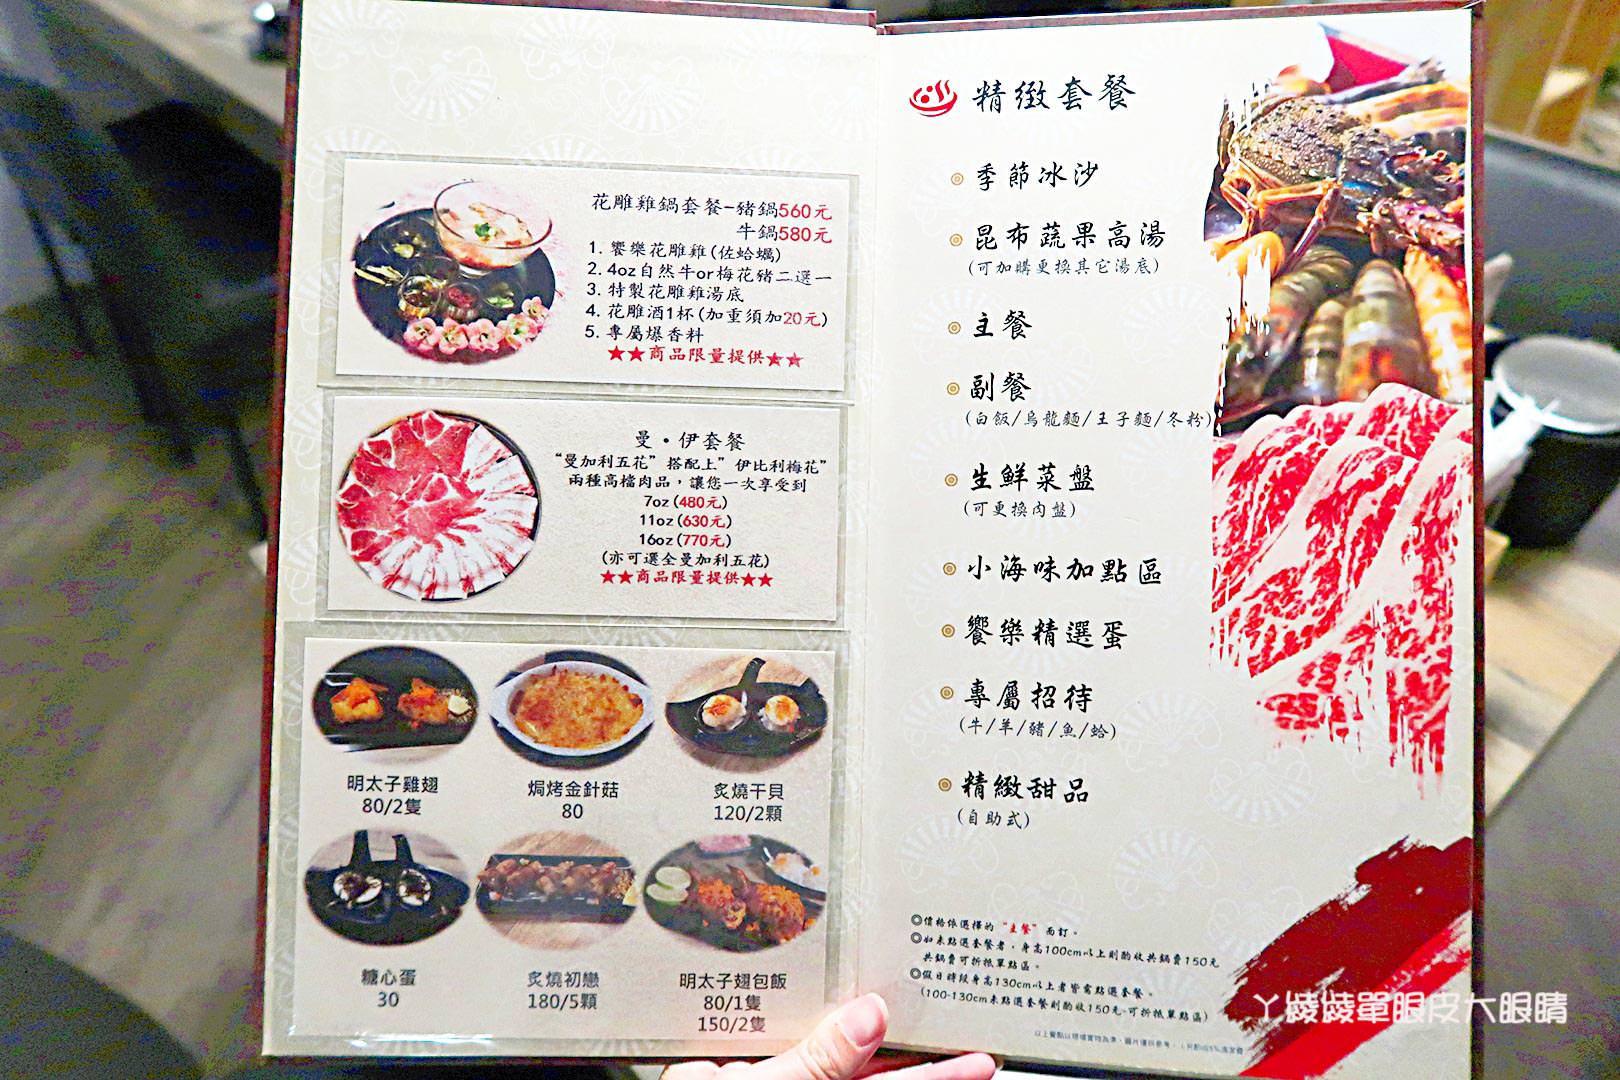 花雕雞鍋套餐-豬鍋560元
牛鍋580元
1. 饗樂花雕雞(佐蛤蠣)
2. 4oz自然牛or梅花豬二選一
3. 特製花雕雞湯底
4. 花雕酒1杯(加重須加20元)
5. 專屬爆香料
★★商品限量提供★★
曼•伊套餐
“曼加利五花”搭配上”伊比利梅花”
兩種高檔肉品，讓您一次享受到
7oz(480元)
11oz(630元)
16oz(770元)
(亦可選全曼加利五花)
★★商品限量提供★★
明太子雞翅
80/2隻
焗烤金針菇
80
炙燒干貝
120/2顆
糖心蛋
30
炙燒初戀
180/5顆
明太子翅包飯
80/1隻
150/2隻
精緻套餐
季節冰沙
昆布蔬果高湯
(可加購更換其它湯底)
主餐
副餐
(白飯/烏龍麵/王子麵/冬粉)
生鮮菜盤
(可更換肉盤)
小海味加點區
饗樂精選蛋
專屬招待
(牛/羊/豬/魚/蛤)
精緻甜品
(自助式)
◎價格依選擇的“主餐”而訂。
◎如未點選套餐者，身高100cm以上則酌收共鍋費150元
共鍋費可折抵單點區。
◎假日時段身高130cm以上者皆需點選套餐。
(100-130cm未點選套餐則酌收150元-可折抵單點區)
以上餐點以現場實物為準，圖片僅供參考。
ㄚ綾綾單眼皮大眼睛